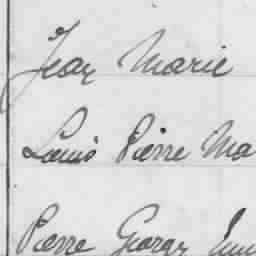 Jean Marie
Louis Pierre Ma
Pierre Georges